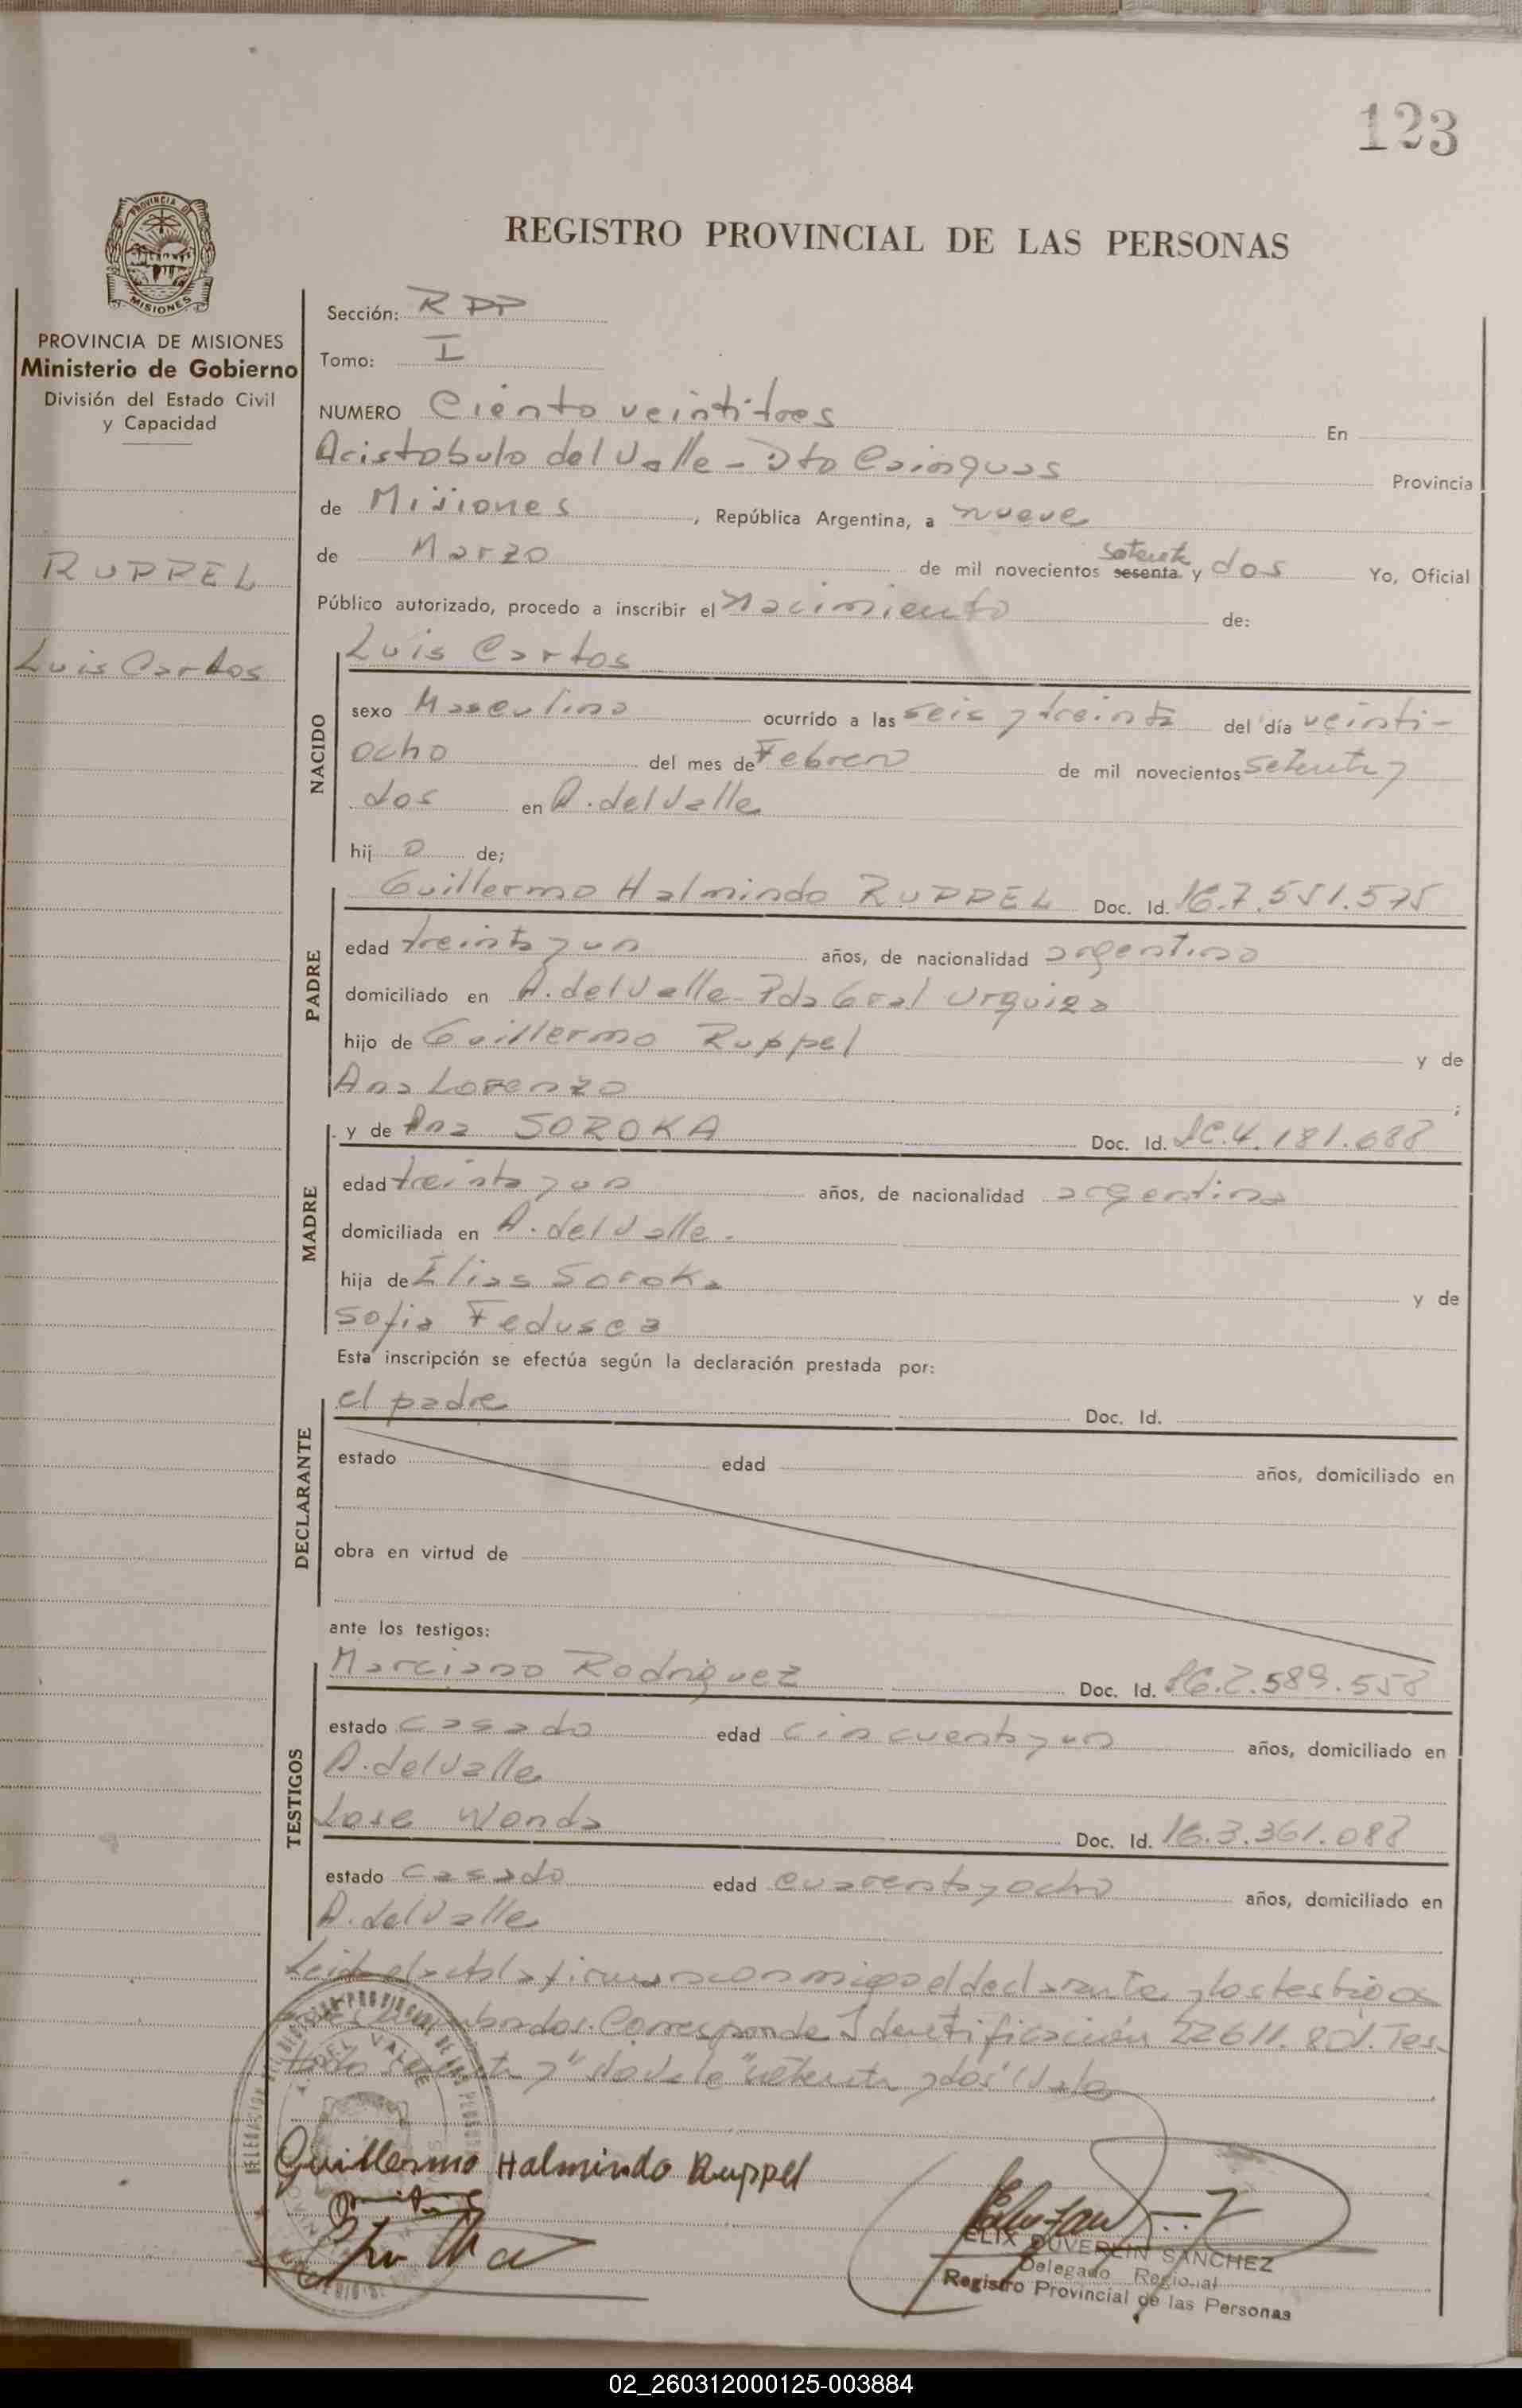 123
PROVINCIA DE
MISIONES
REGISTRO PROVINCIAL DE LAS PERSONAS
PROVINCIA DE MISIONES
Ministerio de Gobierno
División del Estado Civil
y Capacidad
RUPPEL
Luis Carlos
Sección: RPP
Tomo: I
NUMERO Ciento veintitres En
Aristobulo del Valle - Dto Cainguas Provincia
de Misiones, República Argentina, a nueve
de Marzo de mil novecientos sesenta setenta y dos Yo, Oficial
Público autorizado, procedo a inscribir el Nacimiento de:
NACIDO
Luis Carlos
sexo Masculino ocurrido a las seis y treinta del día veinti-
ocho del mes de Febrero de mil novecientos setenta y
dos en A. del Valle
hijo de;
PADRE
Guillermo Halmindo RUPPEL Doc. Id. 7.551.575
edad treinta y un años, de nacionalidad argentina
domiciliado en A. del Valle - Pda Gral Urquiza
hijo de Guillermo Ruppel y de
Ana Lorenzo ;
MADRE
y de Ana SOROKA Doc. Id. LC. 4.181.688
edad treinta y un años, de nacionalidad argentina
domiciliada en A. del Valle.
hija de Elias Soroka y de
Sofia Fedusca
Esta inscripción se efectúa según la declaración prestada por:
DECLARANTE
el padre Doc. Id.
estado edad años, domiciliado en
obra en virtud de
ante los testigos:
TESTIGOS
Marciano Rodriguez Doc. Id. 589.558
estado casado edad cincuenta y un años, domiciliado en
A. del Valle
Jose Wonda Doc. Id. 3.361.088
estado casado edad cuarenta y ocho años, domiciliado en
A. del Valle
Leida el acta la firman conmigo el declarante y los testigos
nombrados. Corresponde Identificación 22611.801. Tes-
tado "sesenta y" no vale "setenta y dos" Vale
Guillermo Halmindo Ruppel
ELIX DUVERLIN SANCHEZ
Delegado Regional
Registro Provincial de las Personas
02_260312000125-003884